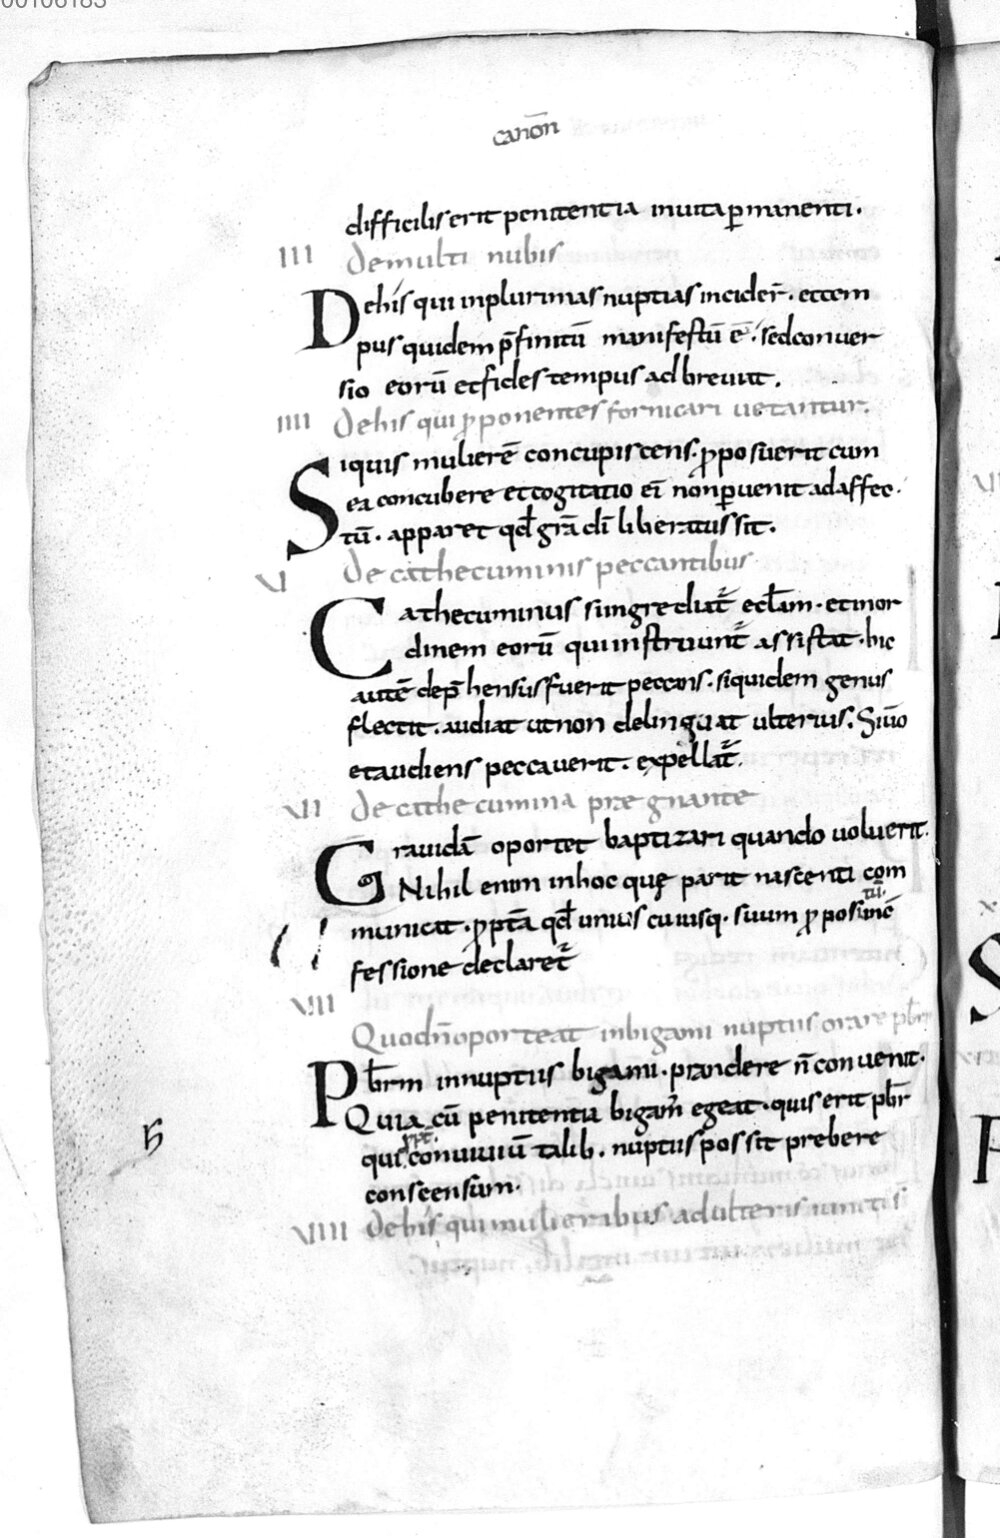 00106183
canōn
difficilis erit penitentia inuita ꝑmanenti.
III de multi nubis
Dehis qui inplurimas nuptias incideꝛ̄. ettem
pus quidem p̄finitū manifestū ē. sed conuer
sio eorū etfides tempus ad breuiat.
IIII Dehis qui ꝓponentes fornicari uetantur.
Siquis mulierē concupiscens. ꝓposuerit cum
ea concubere etcogitatio ei nonꝑuenit adaffec.
tū. apparet qđ grā dī liberatus sit.
VI de cathecuminis peccantibus
Cathecuminus singrediat̄ ecłam. etinor
dinem eorū qui instruunt̄ assistat. hic
autē dep̄hensus fuerit peccans. siquidem genus
flectit. audiat utnon delinquat ulterius. Siū̄o
etaudiens peccauerit. expellat̄.
VII de cathe cumina præ gnante
Grauidā oportet baptizari quando uoluerit.
Nihil enim inhoc quę parit nascenti com
municat. ꝓptā qđ unius cuiusq. suum ꝓpositū incō
fessione declaret̄
VIII
Quodn̄oporteat inbigami nuptiis orare pb̄r
Pb̄rm innuptiis bigami. prandere n̄ conuenit.
Quia cū penitentia bigam̄ egeat. quis erit pb̄r
qui ꝓpt̄. conuiuiū talib. nuptiis possit prebere
consensum.
VIIII dehis qui mulieribus adulteris iuncti s̄